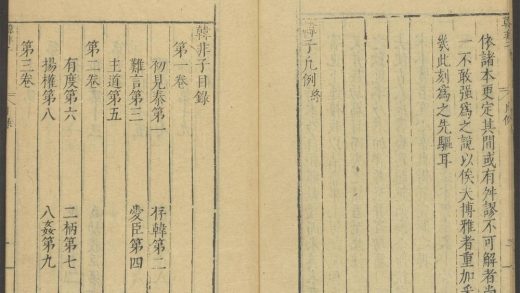 依諸本更定其間或有舛謬不可解者
一不敢强爲之說以俟大博雅者重加
幾此刻爲之先驅耳
韓子凡例終
韓非子目錄
第一卷
初見秦第一 存韓第二
難言第三 愛臣第四
主道第五
第二卷
有度第六 二柄第七
揚權第八 八姦第九
第三卷